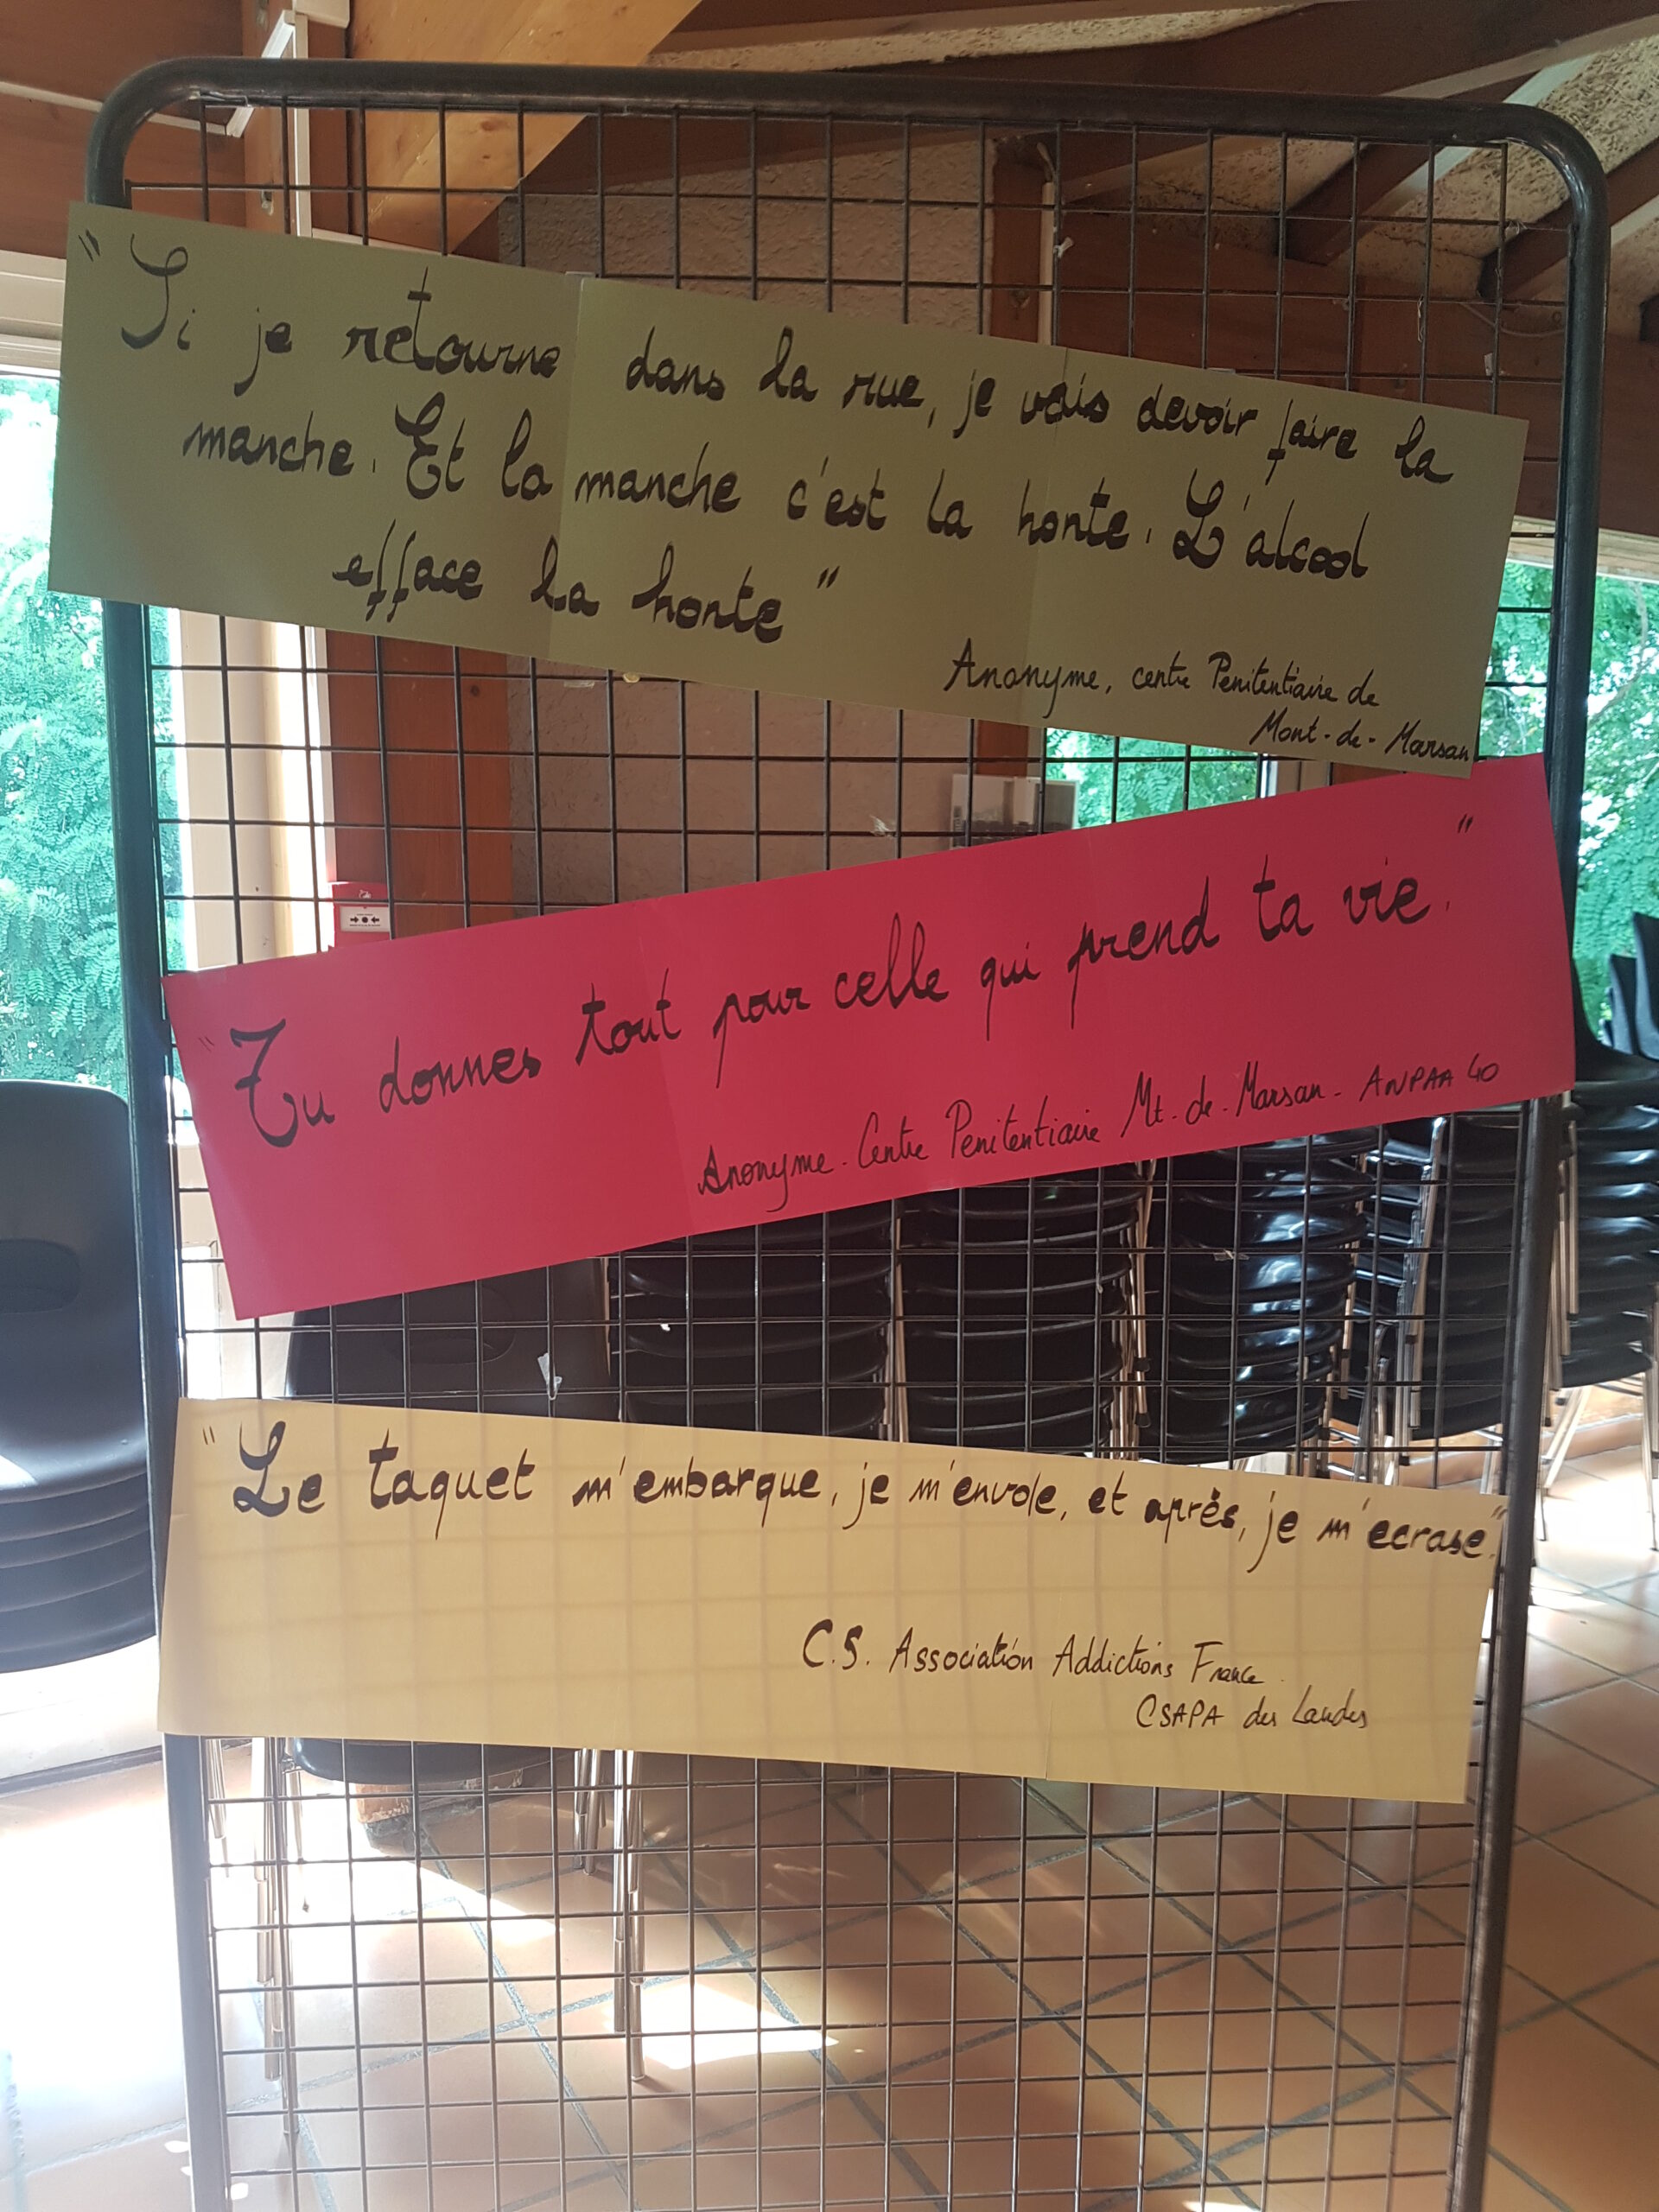 "Si je retourne dans la rue, je vais devoir faire la
manche. Et la manche c'est la honte. L'alcool
efface la honte"
Anonyme, centre Penitentiaire de
Mont-de-Marsan
"Tu donnes tout pour celle qui prend ta vie."
Anonyme - Centre Penitentiaire Mt-de-Marsan - ANPAA 40
"Le taquet m'embarque, je m'envole, et après, je m'ecrase."
C.S. Association Addictions France.
CSAPA des Landes